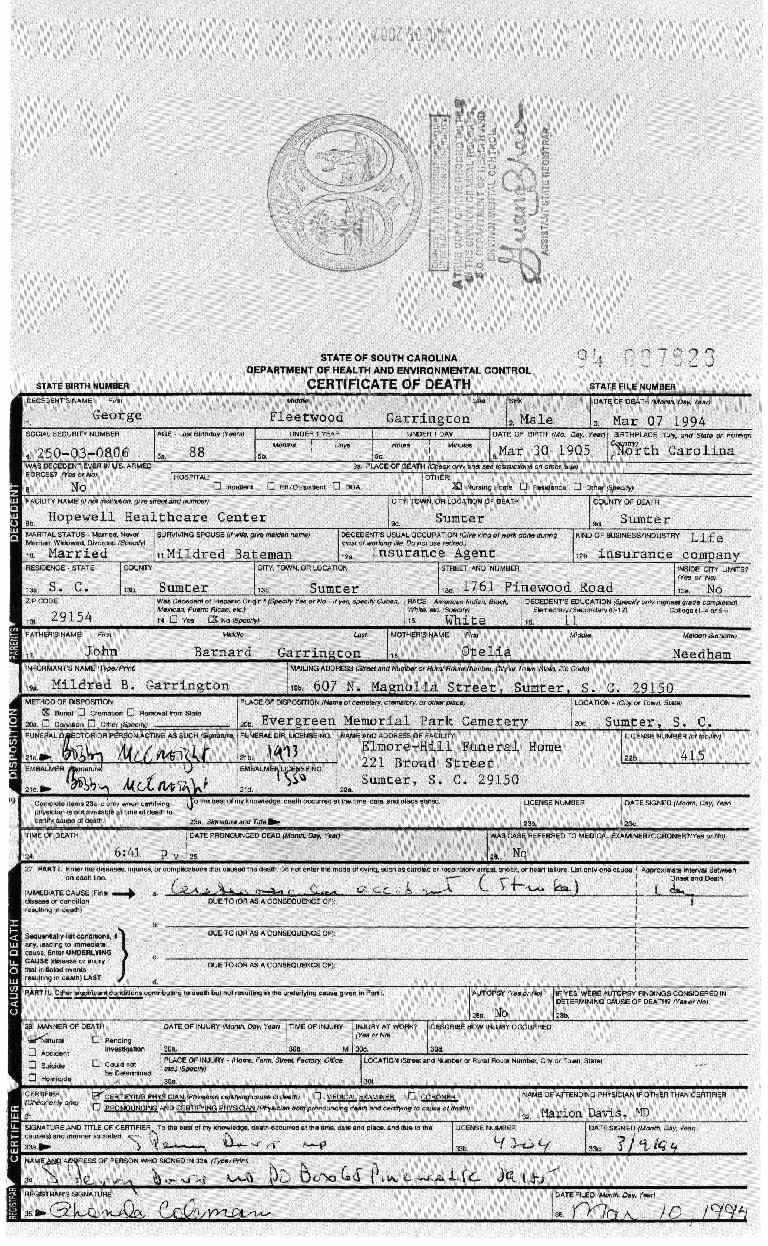 ASSISTANT STATE REGISTRAR
STATE OF SOUTH CAROLINA
DEPARTMENT OF HEALTH AND ENVIRONMENTAL CONTROL
CERTIFICATE OF DEATH
STATE BIRTH NUMBER
STATE FILE NUMBER
DECEDENT
DECEDENT'S NAME First Middle Last SEX DATE OF DEATH (Mo. Day, Year)
1. George Fleetwood Garrington 2. Male 3. Mar 07 1994
SOCIAL SECURITY NUMBER AGE - Last Birthday (Years) UNDER 1 YEAR UNDER 1 DAY DATE OF BIRTH (Mo. Day, Year) BIRTHPLACE (City, and State or Foreign Country)
Months Days Hours Minutes
4. 250-03-0806 5a. 88 5b. 5c. Mar 30 1905 North Carolina
WAS DECEDENT EVER IN U.S. ARMED FORCES? (Yes or No) PLACE OF DEATH (Check only one; see instructions on other side)
No HOSPITAL: Inpatient ER/Outpatient DOA OTHER: Nursing Home Residence Other (Specify)
FACILITY NAME (If not institution, give street and number) CITY, TOWN, OR LOCATION OF DEATH COUNTY OF DEATH
9b. Hopewell Healthcare Center 9c. Sumter 9d. Sumter
MARITAL STATUS - Married, Never Married, Widowed, Divorced (Specify) SURVIVING SPOUSE (If wife, give maiden name) DECEDENT'S USUAL OCCUPATION (Give kind of work done during most of working life. Do not use retired.) KIND OF BUSINESS/INDUSTRY Life
10. Married 11. Mildred Bateman 12a. nsurance Agent 12b. insurance company
RESIDENCE - STATE COUNTY CITY, TOWN, OR LOCATION STREET AND NUMBER INSIDE CITY LIMITS? (Yes or No)
13a. S. C. 13b. Sumter 13c. Sumter 13d. 1761 Pinewood Road 13e. No
ZIP CODE Was Decedent of Hispanic Origin? (Specify Yes or No - If yes, specify Cuban, Mexican, Puerto Rican, etc.) RACE - American Indian, Black, White, etc. (Specify) DECEDENT'S EDUCATION (Specify only highest grade completed)
Elementary/Secondary (0-12) College (1-4 or 5+)
13f. 29154 14. Yes No (Specify) 15. White 16. 11
PARENTS
FATHER'S NAME First Middle Last MOTHER'S NAME First Middle Maiden Surname
17. John Barnard Garrington 18. Otelia Needham
INFORMANT'S NAME (Type/Print) MAILING ADDRESS (Street and Number or Rural Route Number, City or Town, State, Zip Code)
19a. Mildred B. Garrington 19b. 607 N. Magnolia Street, Sumter, S. C. 29150
DISPOSITION
METHOD OF DISPOSITION PLACE OF DISPOSITION (Name of cemetery, crematory, or other place) LOCATION - (City or Town, State)
Burial Cremation Removal from State
20a. Donation Other (Specify) 20b. Evergreen Memorial Park Cemetery 20c. Sumter, S. C.
FUNERAL DIRECTOR OR PERSON ACTING AS SUCH (Signature) FUNERAL DIR. LICENSE NO. NAME AND ADDRESS OF FACILITY LICENSE NUMBER (of facility)
21a. Bobby McCreight 21b. 1973 Elmore-Hill Funeral Home 22b. 415
EMBALMER (Signature) EMBALMER LICENSE NO. 221 Broad Street
21c. Bobby McCreight 21d. 1550 22a. Sumter, S. C. 29150
Complete items 23a-c only when certifying physician is not available at time of death to certify cause of death.
To the best of my knowledge, death occurred at the time, date, and place stated. LICENSE NUMBER DATE SIGNED (Month, Day, Year)
23a. Signature and Title 23b. 23c.
TIME OF DEATH DATE PRONOUNCED DEAD (Month, Day, Year) WAS CASE REFERRED TO MEDICAL EXAMINER/CORONER? (Yes or No)
24. 6:41 P 25. 26. No
CAUSE OF DEATH
27. PART I. Enter the diseases, injuries, or complications that caused the death. Do not enter the mode of dying, such as cardiac or respiratory arrest, shock, or heart failure. List only one cause on each line. Approximate Interval Between Onset and Death
IMMEDIATE CAUSE (Final disease or condition resulting in death) a. accident (Stroke) 1 day
DUE TO (OR AS A CONSEQUENCE OF):
Sequentially list conditions, if any, leading to immediate cause. Enter UNDERLYING CAUSE (disease or injury that initiated events resulting in death) LAST
DUE TO (OR AS A CONSEQUENCE OF):
c.
DUE TO (OR AS A CONSEQUENCE OF):
d.
PART II. Other significant conditions contributing to death but not resulting in the underlying cause given in Part I. AUTOPSY (Yes or No) IF YES, WERE AUTOPSY FINDINGS CONSIDERED IN DETERMINING CAUSE OF DEATH? (Yes or No)
28a. No 28b.
29. MANNER OF DEATH DATE OF INJURY (Month, Day, Year) TIME OF INJURY INJURY AT WORK? (Yes or No) DESCRIBE HOW INJURY OCCURRED
Natural Pending Investigation
Accident 30a. 30b. M 30c. 30d.
Suicide Could not be Determined PLACE OF INJURY - (Home, Farm, Street, Factory, Office etc.) (Specify) LOCATION (Street and Number or Rural Route Number, City or Town, State)
Homicide 30e. 30f.
CERTIFIER
CERTIFIER (Check only one) CERTIFYING PHYSICIAN (Physician certifying cause of death) MEDICAL EXAMINER CORONER NAME OF ATTENDING PHYSICIAN IF OTHER THAN CERTIFIER
PRONOUNCING AND CERTIFYING PHYSICIAN (Physician both pronouncing death and certifying to cause of death) Marion Davis, MD
SIGNATURE AND TITLE OF CERTIFIER To the best of my knowledge, death occurred at the time, date and place, and due to the cause(s) and manner as stated. LICENSE NUMBER DATE SIGNED (Month, Day, Year)
33a. 33b. 4304 33c. 3/9/94
NAME AND ADDRESS OF PERSON WHO SIGNED IN 33a (Type/Print)
REGISTRAR
REGISTRAR'S SIGNATURE DATE FILED (Month, Day, Year)
35. Rhonda Coleman 36. Mar 10, 1994